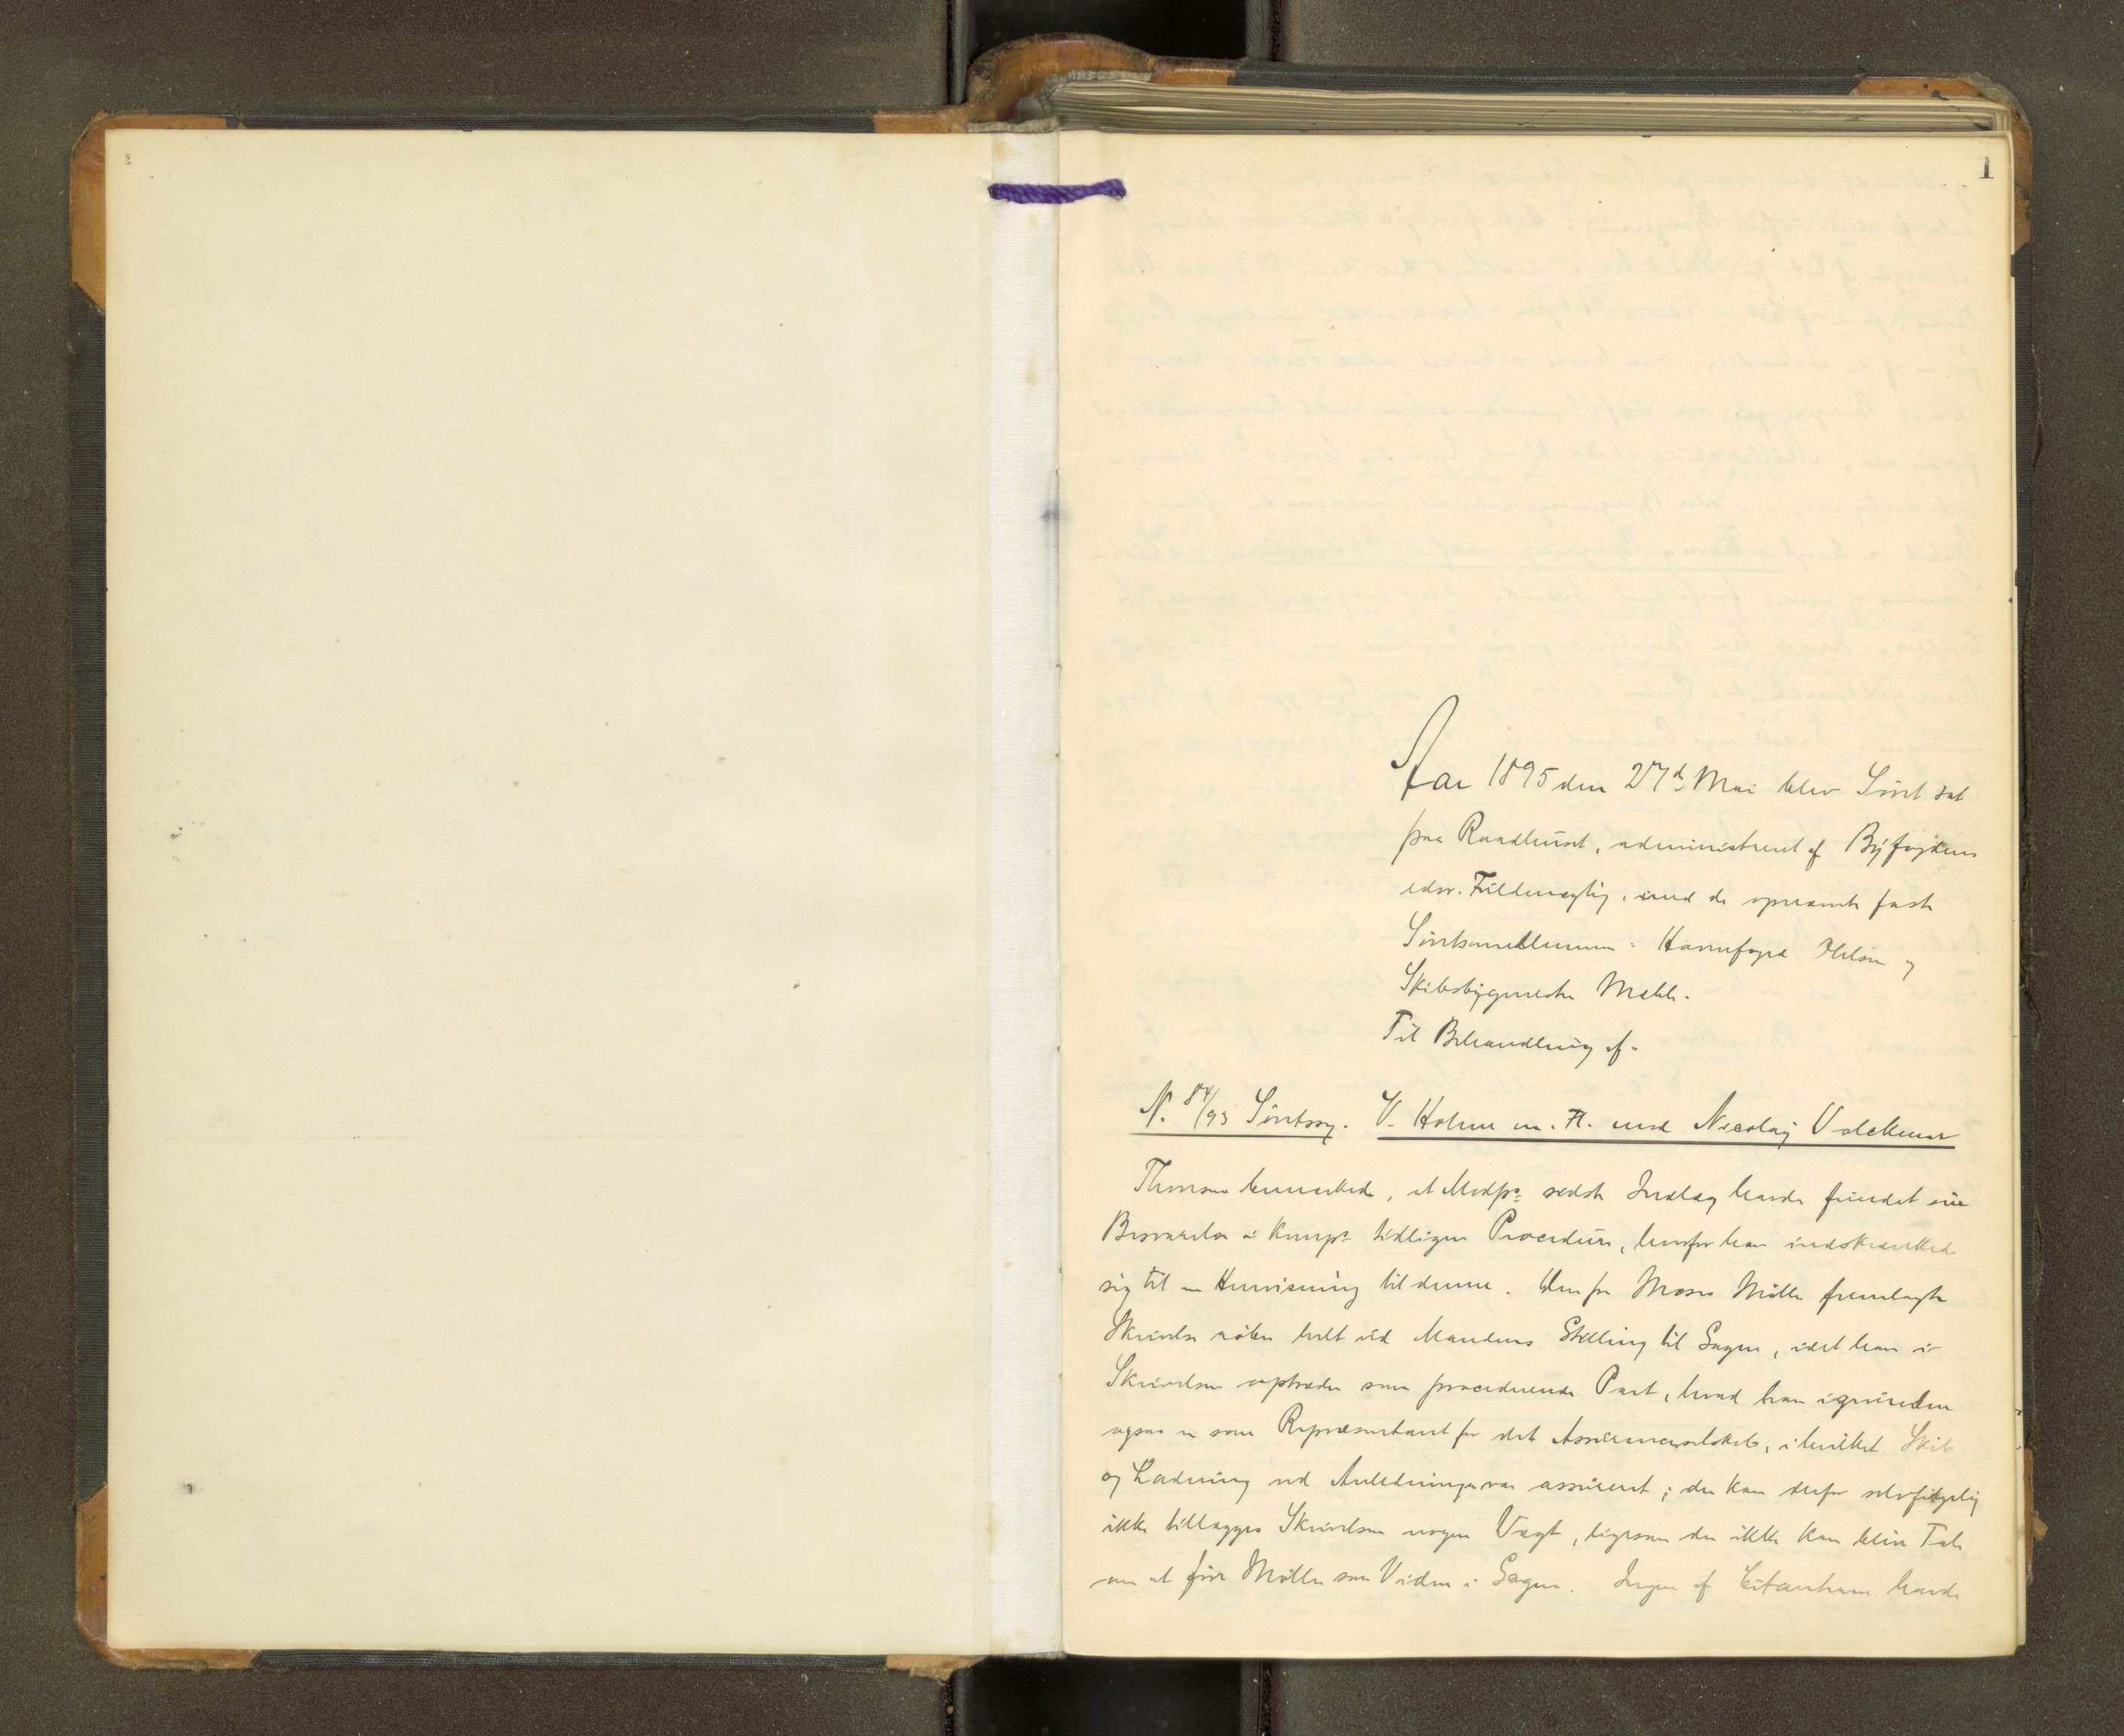 1
Aar 1895 den 27d. Mai blev Søret sat
paa Raadhuset, administreret af Byfogdens
edsv. Fuldmægtig, med de opnævnte faste
Søretsmedlemmer: Havnefoged Olsen og
Skibsbygmester
Til Behandling af:
N. 84/93 Søretssag. V. Holme m. Fl. mod Nicolay Valckmar
Thomsen bemærkede, at Modp's sidste Indlæg havde fundet sin
Besvarelse i Komp's tidligere Procedure, hvorfor han indskrænkede
sig til en Henvisning til denne. Den fra Moses Møller fremlagte
Skrivelse røber helt ud Mandens Stilling til Sagen, idet han i
Skrivelsen optræder som procederende Part, hvad han igrunden
ogsaa er som Repræsentant for det Assuranceselskab, i hvilket Skib
og Ladning ved Anledningen var assureret; der kan derfor selvfølgelig
ikke tillægges Skrivelsen nogen Vægt, ligesom der ikke kan blive Tale
om at føre Møller som Vidne i Sagen. Ingen af Citanterne havde